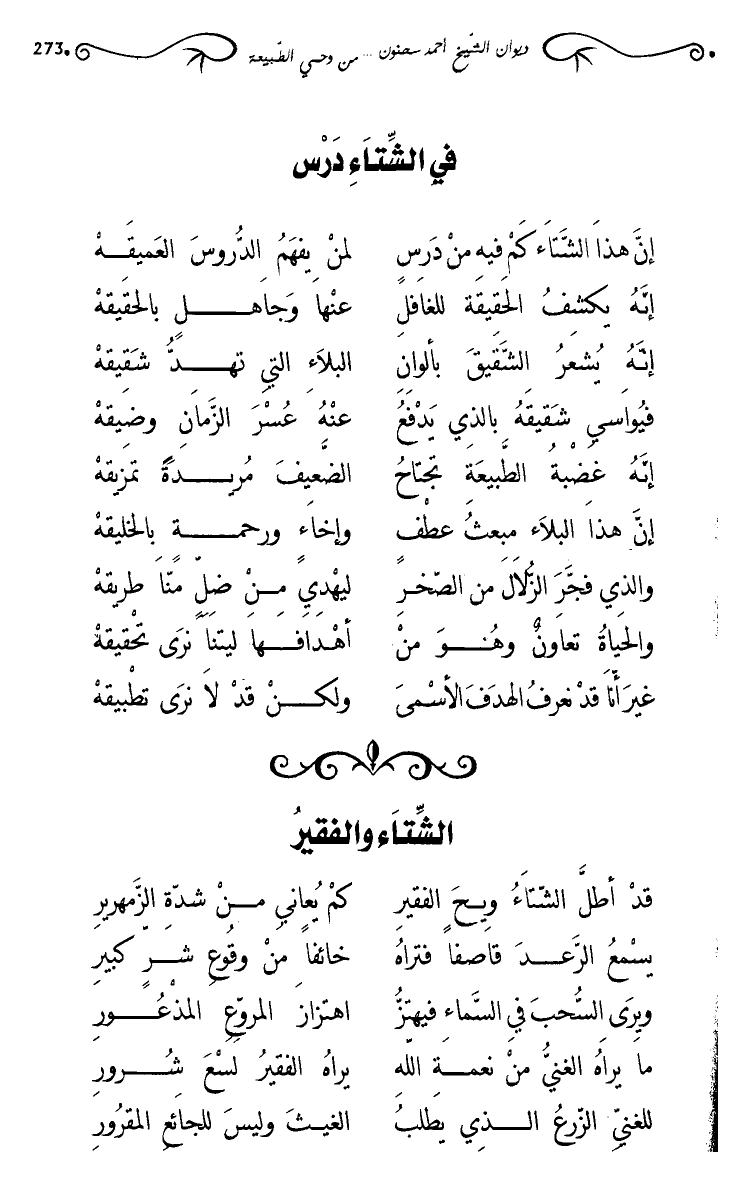 ديوان الشّيخ أحمد سحنون ... من وحي الطّبيعة 273
في الشِّتَاءِ دَرْس
إنَّ هذا الشَّتَاء كَمْ فيهِ منْ دَرسٍ لمنْ يفهَمُ الدُّروسَ العَميقَهْ
إنَّهُ يكشفُ الحَقيقة للغافلِ عنْها وَجاهلٍ بالحَقيقهْ
إنَّهُ يُشعرُ الشَّقيقَ بألوانِ البلاَءِ التي تهدُّ شَقيقهْ
فيُواسي شَقيقَهُ بالذي يَدْفعُ عنْهُ عُسْرَ الزَّمانِ وضيقهْ
إنَّهُ غضْبةُ الطَّبيعَةِ تجْتاحُ الضّعيفَ مُريدةً تمزيقهْ
إنَّ هذا البلاَء مبعثُ عطْفٍ وإخاءٍ ورحمةٍ بالخليقهْ
والذي فجَّرَ الزُّلاَل من الصّخرِ ليهْدِي مِنْ ضلّ منَّا طريقهْ
والحَياةُ تعاونٌ وهُنوَ منْ أهْدافها ليتنَا نرَى تحْقيقهْ
غيرَ أنَّا قدْ نعرفُ الهدفَ الأسْمىَ ولكنْ قدْ لاَ نرَى تطْبيقهْ
الشِّتَاء والفقيرُ
قدْ أطلَّ الشّتَاءُ ويحَ الفقيرِ كمْ يُعاني منْ شدّةِ الزَّمهريرِ
يسْمعُ الرَّعدَ قاصفاً فتراهُ خائفاً منْ وقُوعِ شرٍ كبيرِ
ويرَى السُّحبَ في السَّماءِ فيهتزُّ اهتزاز المروّعِ المذْعُورِ
ما يراهُ الغنيُّ منْ نعمةِ اللهِ يراهُ الفقيرُ لسْعَ شُرورِ
للغنيّ الزّرعُ الذي يطلبُ الغيثَ وليسَ للجائعِ المقرُورِ